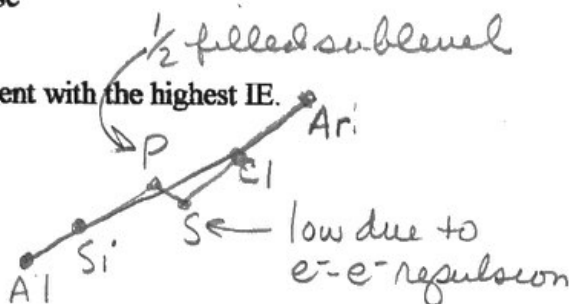 se
1/2 filled sublevel
ent with the highest IE.
Ar
P
Cl
S ← low due to
Si
e⁻-e⁻ repulsion
Al